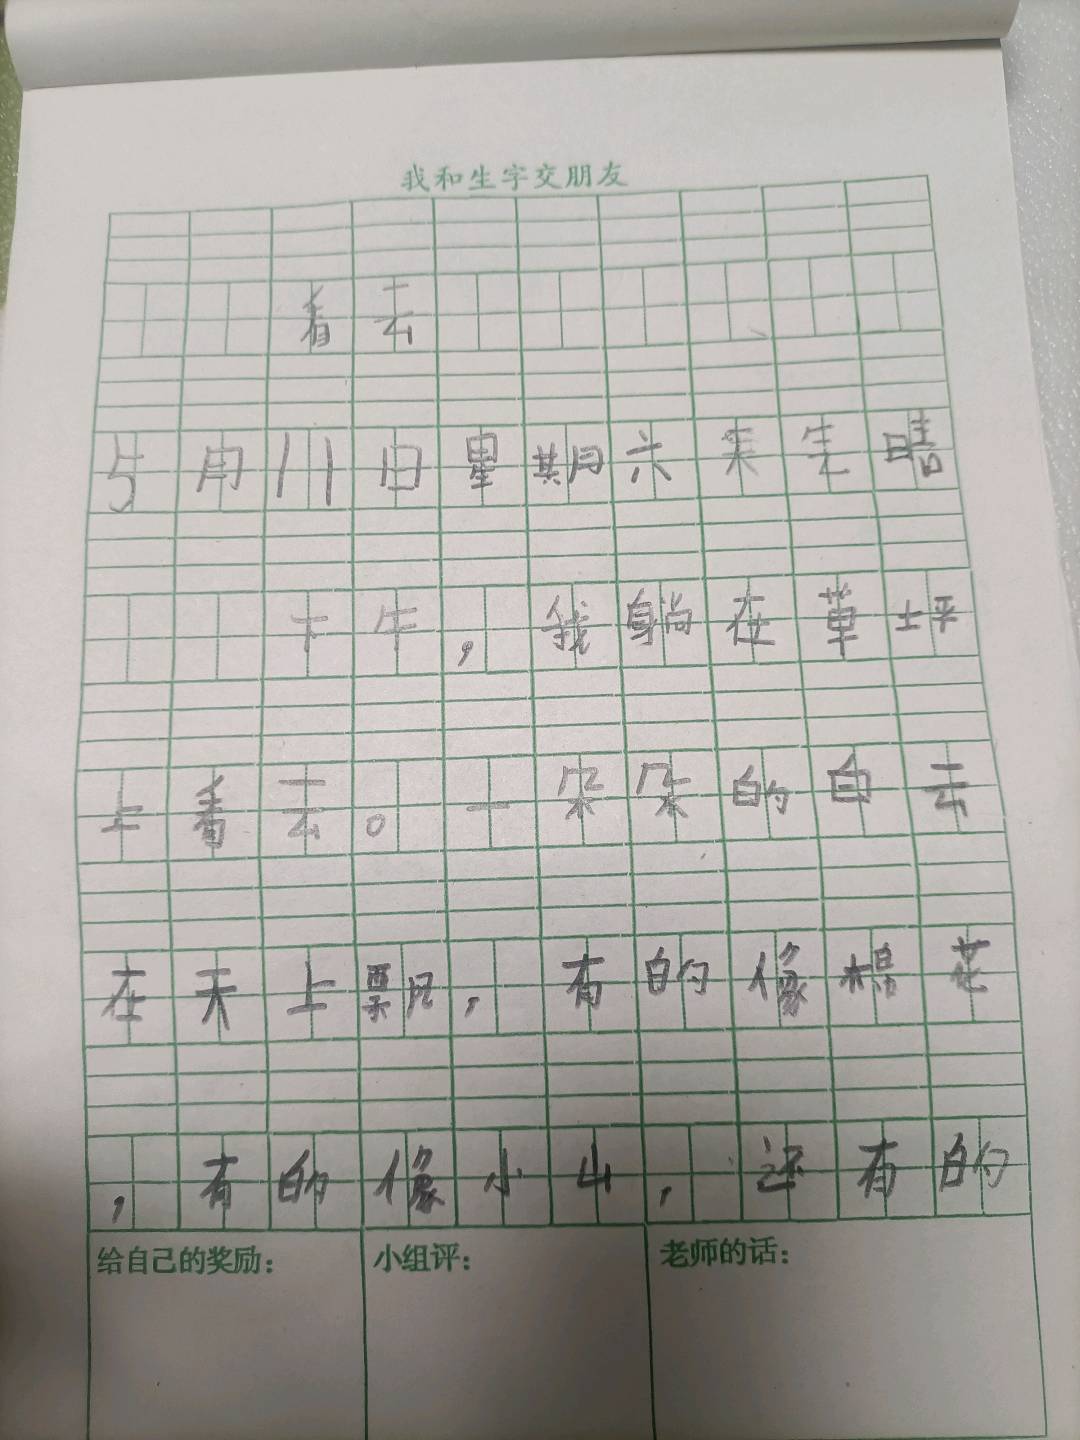 我和生字交朋友
看云
5月11日星期六天气晴
下午，我躺在草坪
上看云。一朵朵的白云
在天上飘，有的像棉花
，有的像小山，还有的
给自己的奖励： 小组评： 老师的话：